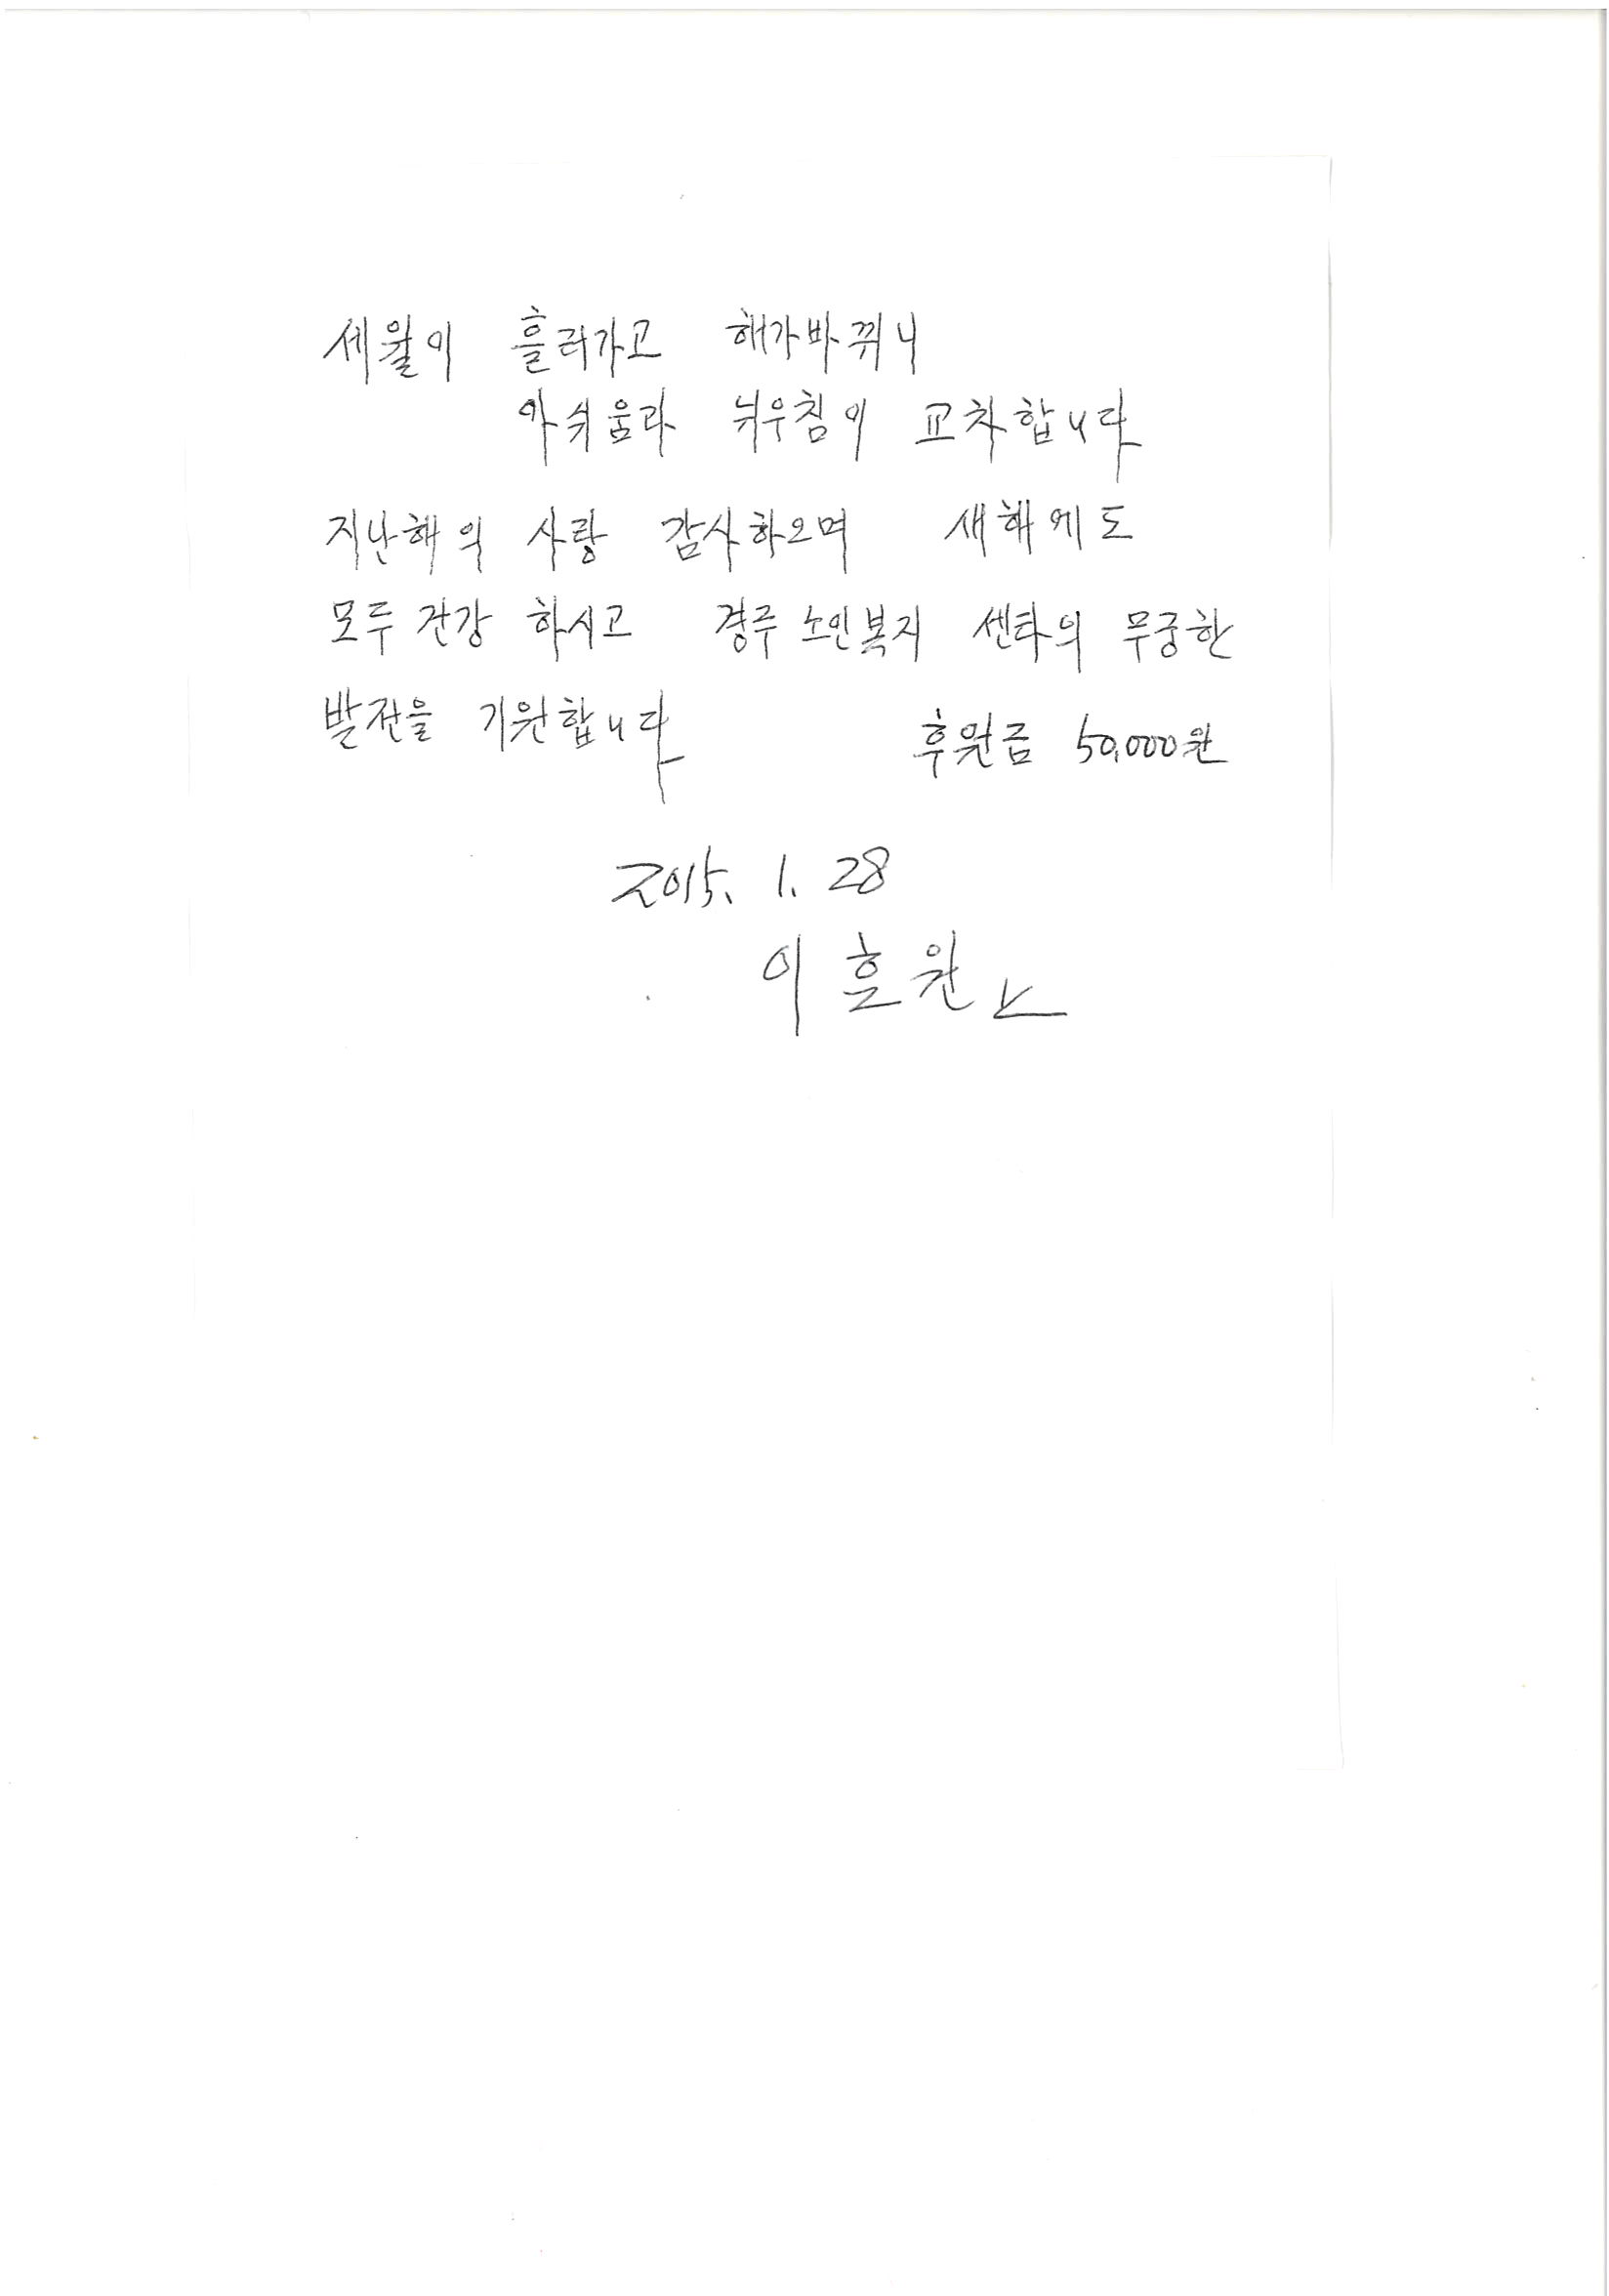 세월이 흘러가고 해가바뀌니
아쉬움과 뉘우침이 교차합니다
지난해의 사랑 감사하오며 새해에도
모두 건강 하시고 경주 노인복지 센타의 무궁한
발전을 기원합니다 후원금 50,000원
2015. 1. 28
이흔원